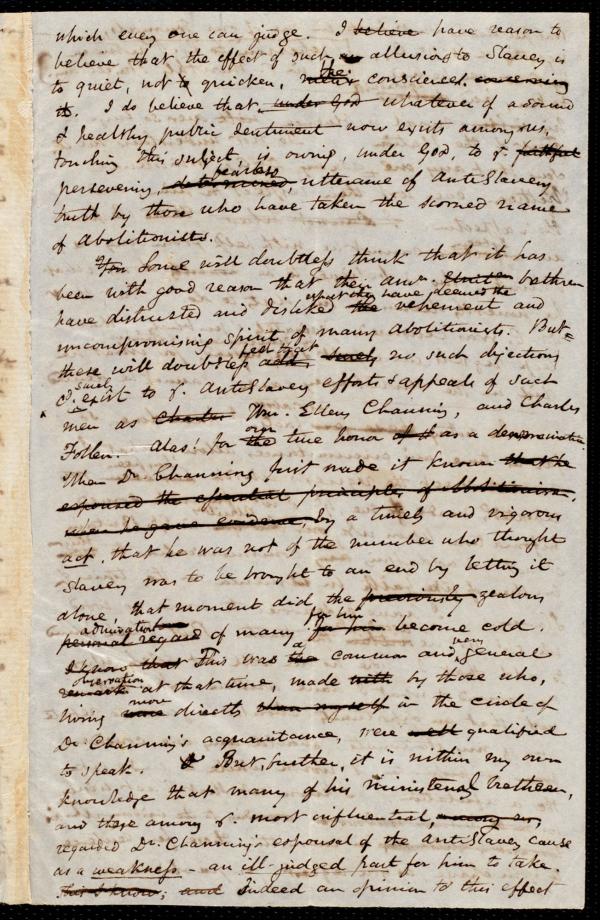 which every one can judge. I believe have reason to
believe that the effect of such an allusions to Slavery is
to quiet, not to quicken, their the consciences concerning
it. I do believe that, under God whatever of a sound
& healthy public sentiment now exists among us,
touching this subject, is owing, under God, to ye. faithful
persevering, determined, fearless utterance of AntiSlavery
truth by those who have taken the scorned name
of Abolitionists.
You Some will doubtless think that it has
been with good reason that their brethren
have distrusted and disliked the what they have deemed the vehement and
uncompromising spirit of many abolitionists. But
these will doubtless add, feel that surely no such objections
cd. surely exist to ye. AntiSlavery efforts & appeals of such
men as Charles Wm. Ellery Channing, and Charles
Follen. Alas! for the our true honor of it as a denomination
When Dr Channing first made it known that he
espoused the essential principles of Abolitionism,
when he gave evidence, by a timely and vigorous
act, that he was not of the number who thought
Slavery was to be brought to an end by letting it
alone, that moment did the previously zealous
personal regard admiration of many for him for him become cold.
I know that This was the a common and very general
remark observation at that time, made with by those who,
living were more directly than myself in the circle of
Dr Channing's acquaintance, were well qualified
to speak. But, further, it is within my own
knowledge that many of his ministerial brethren,
and those among ye. most influential, among us,
regarded Dr. Channing's espousal of the AntiSlavery cause
as a weakness - an ill-judged part for him to take.
This I know; and Indeed an opinion to this effect